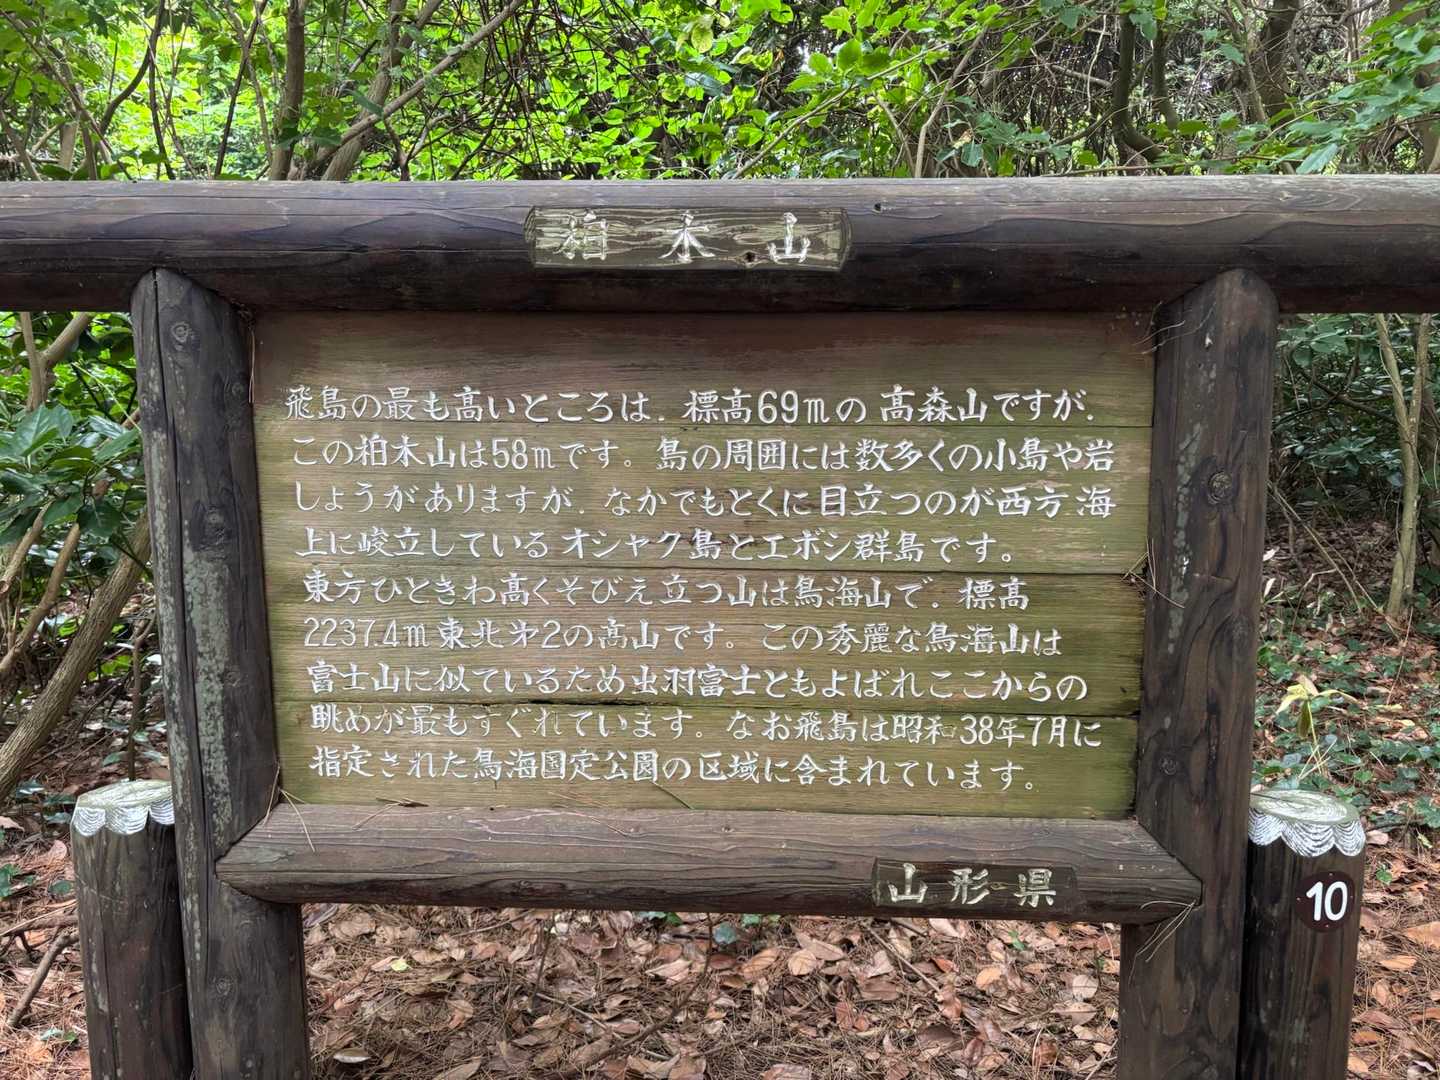 柏木山
飛島の最も高いところは、標高69mの高森山ですが、
この柏木山は58mです。島の周囲には数多くの小島や岩
しょうがありますが、なかでもとくに目立つのが西方海
上に峻立しているオシャク島とエボシ群島です。
東方ひときわ高くそびえ立つ山は鳥海山で、標高
2237.4m東北第2の高山です。この秀麗な鳥海山は
富士山に似ているため出羽富士ともよばれここからの
眺めが最もすぐれています。なお飛島は昭和38年7月に
指定された鳥海国定公園の区域に含まれています。
山形県
10